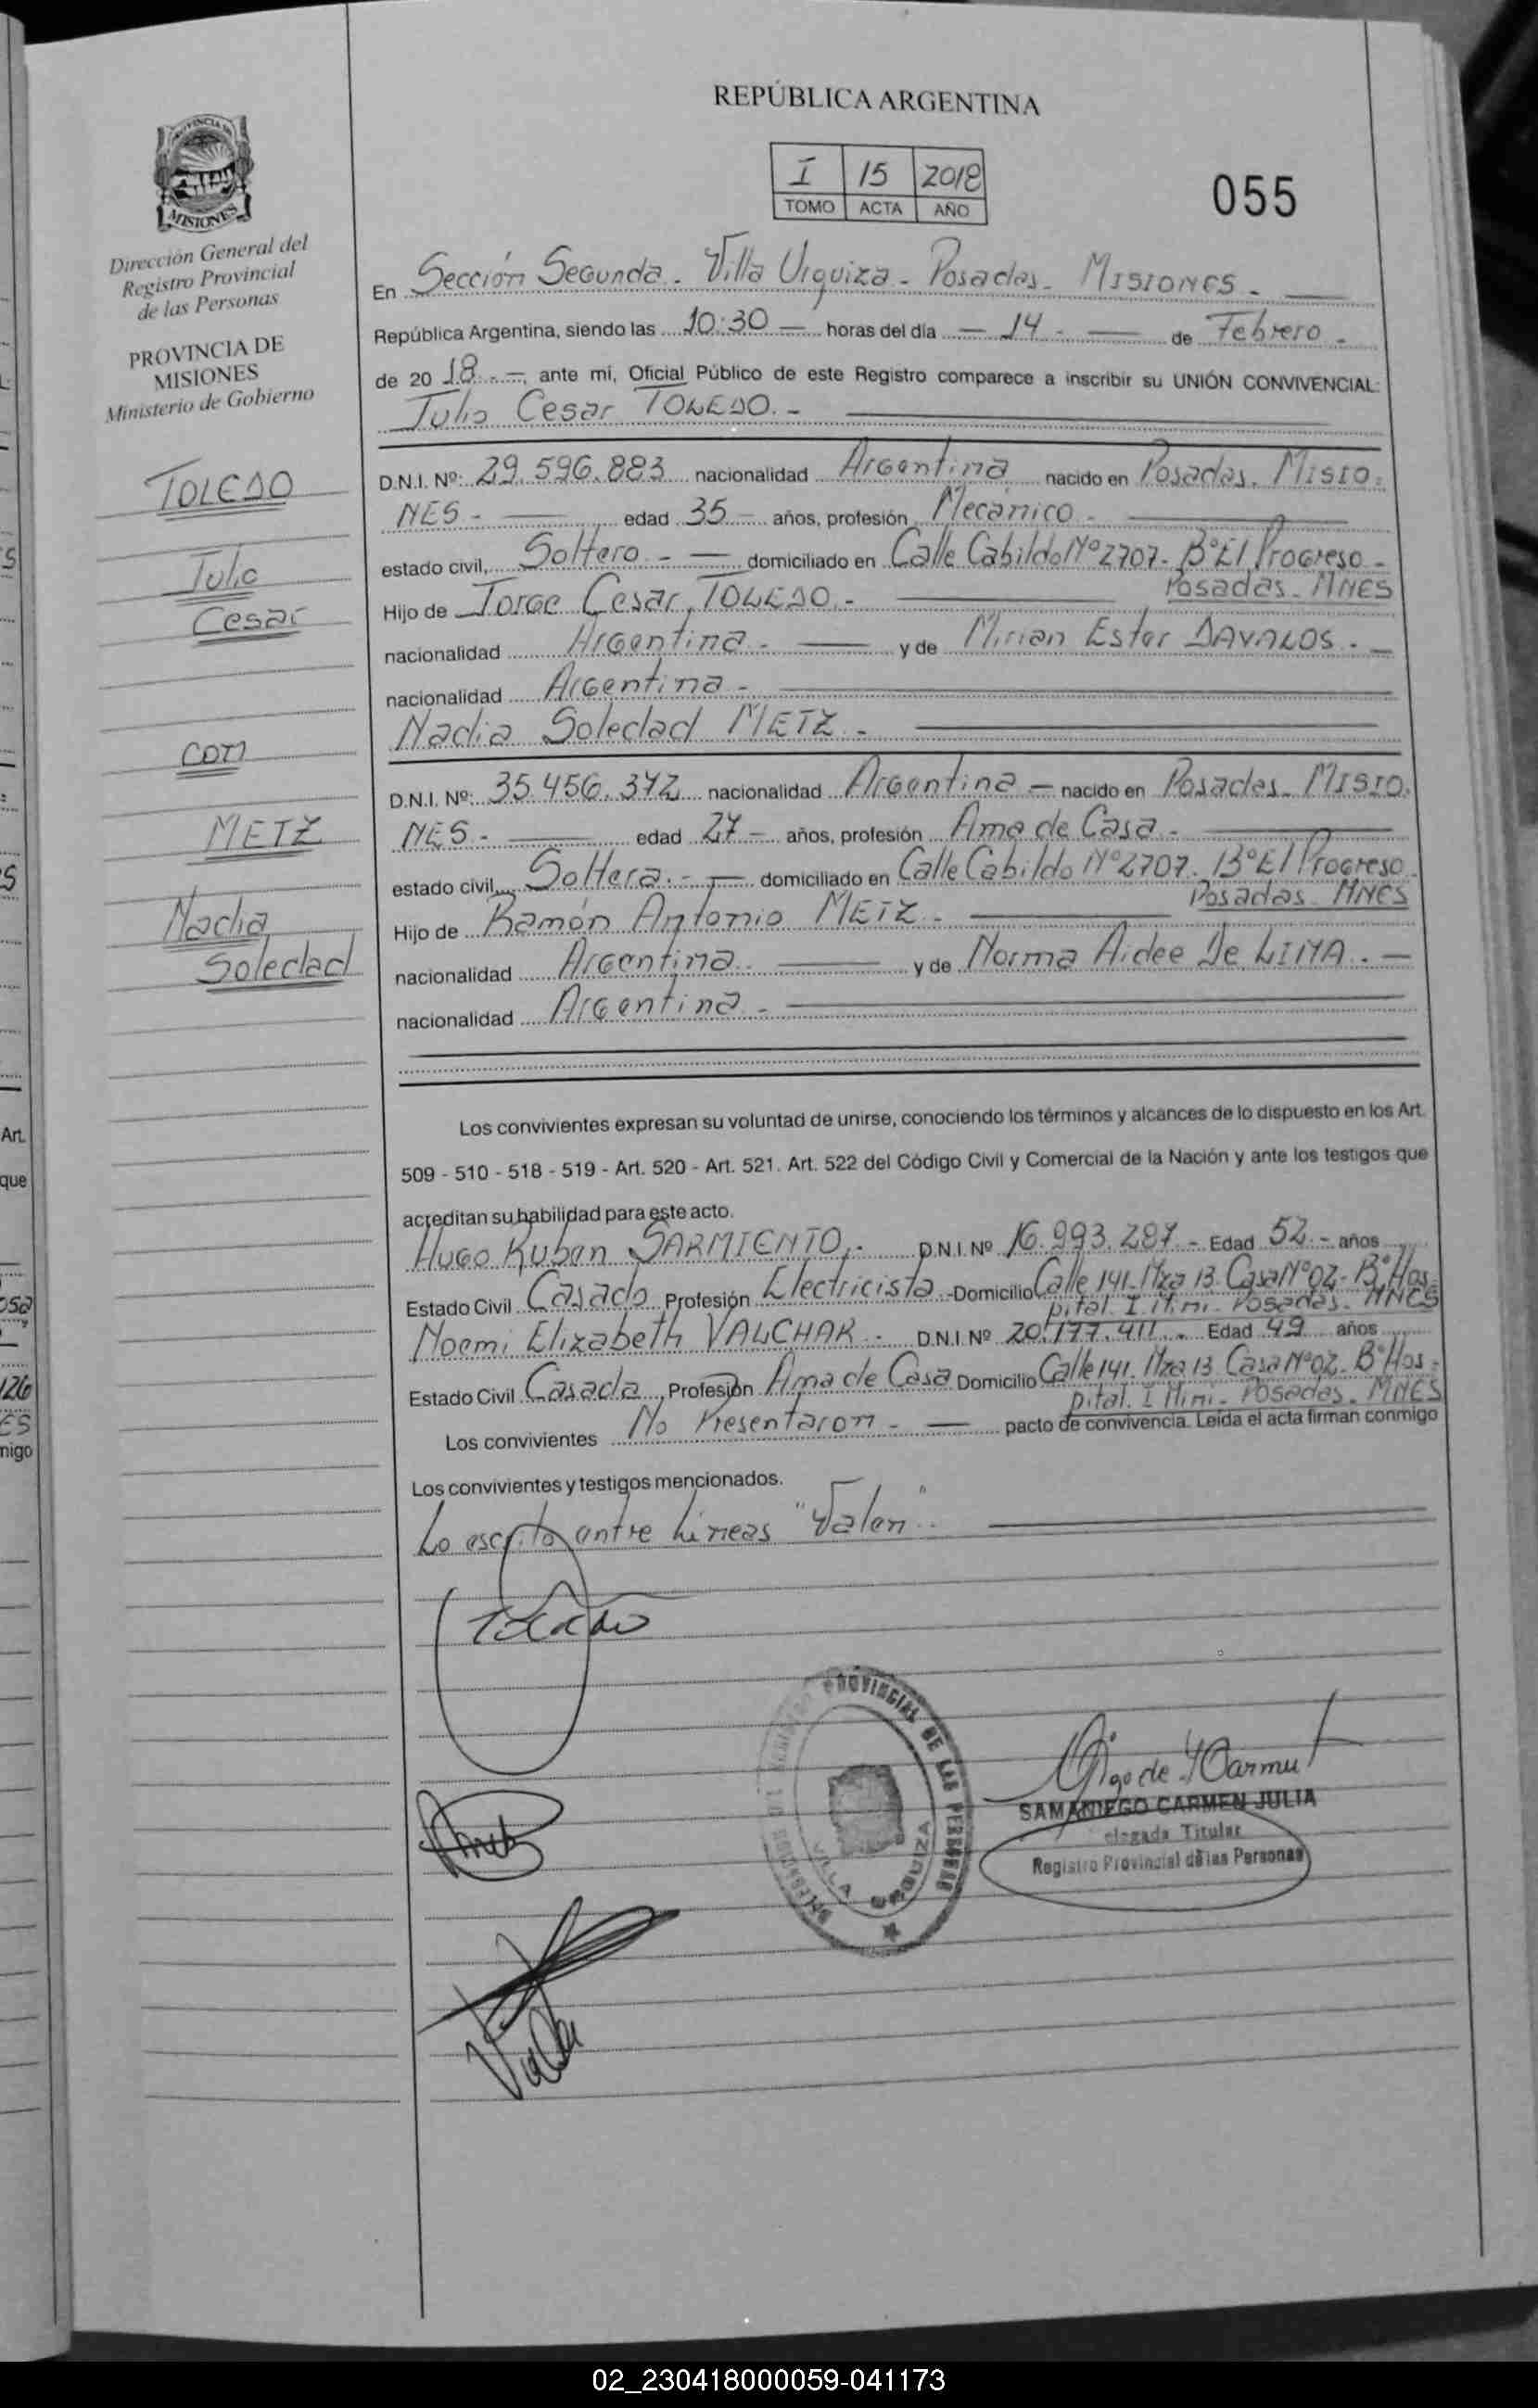 REPÚBLICA ARGENTINA
I 15 2018
TOMO ACTA AÑO
055
PROVINCIA DE
MISIONES
Dirección General del
Registro Provincial
de las Personas
PROVINCIA DE
MISIONES
Ministerio de Gobierno
TOLEDO
Julio
Cesar
con
METZ
Nadia
Soledad
En Sección Segunda - Villa Urquiza - Posadas - MISIONES -
República Argentina, siendo las 10:30 horas del día 14 - de Febrero -
de 20 18.- ante mi, Oficial Público de este Registro comparece a inscribir su UNIÓN CONVIVENCIAL:
Julio Cesar TOLEDO. -
D.N.I. Nº: 29.596.883 nacionalidad Argentina nacido en Posadas. MISIO-
NES - edad 35 - años, profesión Mecánico -
estado civil, Soltero - domiciliado en Calle Cabildo Nº 2707 - Bº El Progreso -
Posadas - MNES
Hijo de Jorge Cesar TOLEDO. -
nacionalidad Argentina - y de Mirian Ester DAVALOS. -
nacionalidad Argentina -
Nadia Soledad METZ -
D.N.I. Nº: 35.456.372 nacionalidad Argentina - nacido en Posadas - MISIO-
NES - edad 27 - años, profesión Ama de Casa -
estado civil, Soltera. - domiciliado en Calle Cabildo Nº 2707. Bº El Progreso
Posadas MNES
Hijo de Ramón Antonio METZ -
nacionalidad Argentina. y de Norma Aidee De LIMA. -
nacionalidad Argentina. -
Los convivientes expresan su voluntad de unirse, conociendo los términos y alcances de lo dispuesto en los Art.
509 - 510 - 518 - 519 - Art. 520 - Art. 521. Art. 522 del Código Civil y Comercial de la Nación y ante los testigos que
acreditan su habilidad para este acto.
Hugo Ruben SARMIENTO. - D.N.I. Nº 16.993.287 - Edad 52 - años
Estado Civil Casado Profesión Electricista - Domicilio Calle 141. Mza 13. Casa Nº 02 - Bº Hos-
pital. I. Mini - Posadas. MNES
Noemi Elizabeth VALCHAR - D.N.I. Nº 20.177.411 - Edad 49 años
Estado Civil Casada Profesión Ama de Casa Domicilio Calle 141. Mza 13 Casa Nº 02 - Bº Hos-
pital. I Mini - Posadas. MNES
Los convivientes No Presentaron - pacto de convivencia. Leída el acta firman conmigo
Los convivientes y testigos mencionados.
Lo escrito entre Lineas "Valen".
PROVINCIAL DE LAS PERSONAS
VILLA URQUIZA
SAMANIEGO CARMEN JULIA
elegada Titular
Registro Provincial de las Personas
02_230418000059-041173